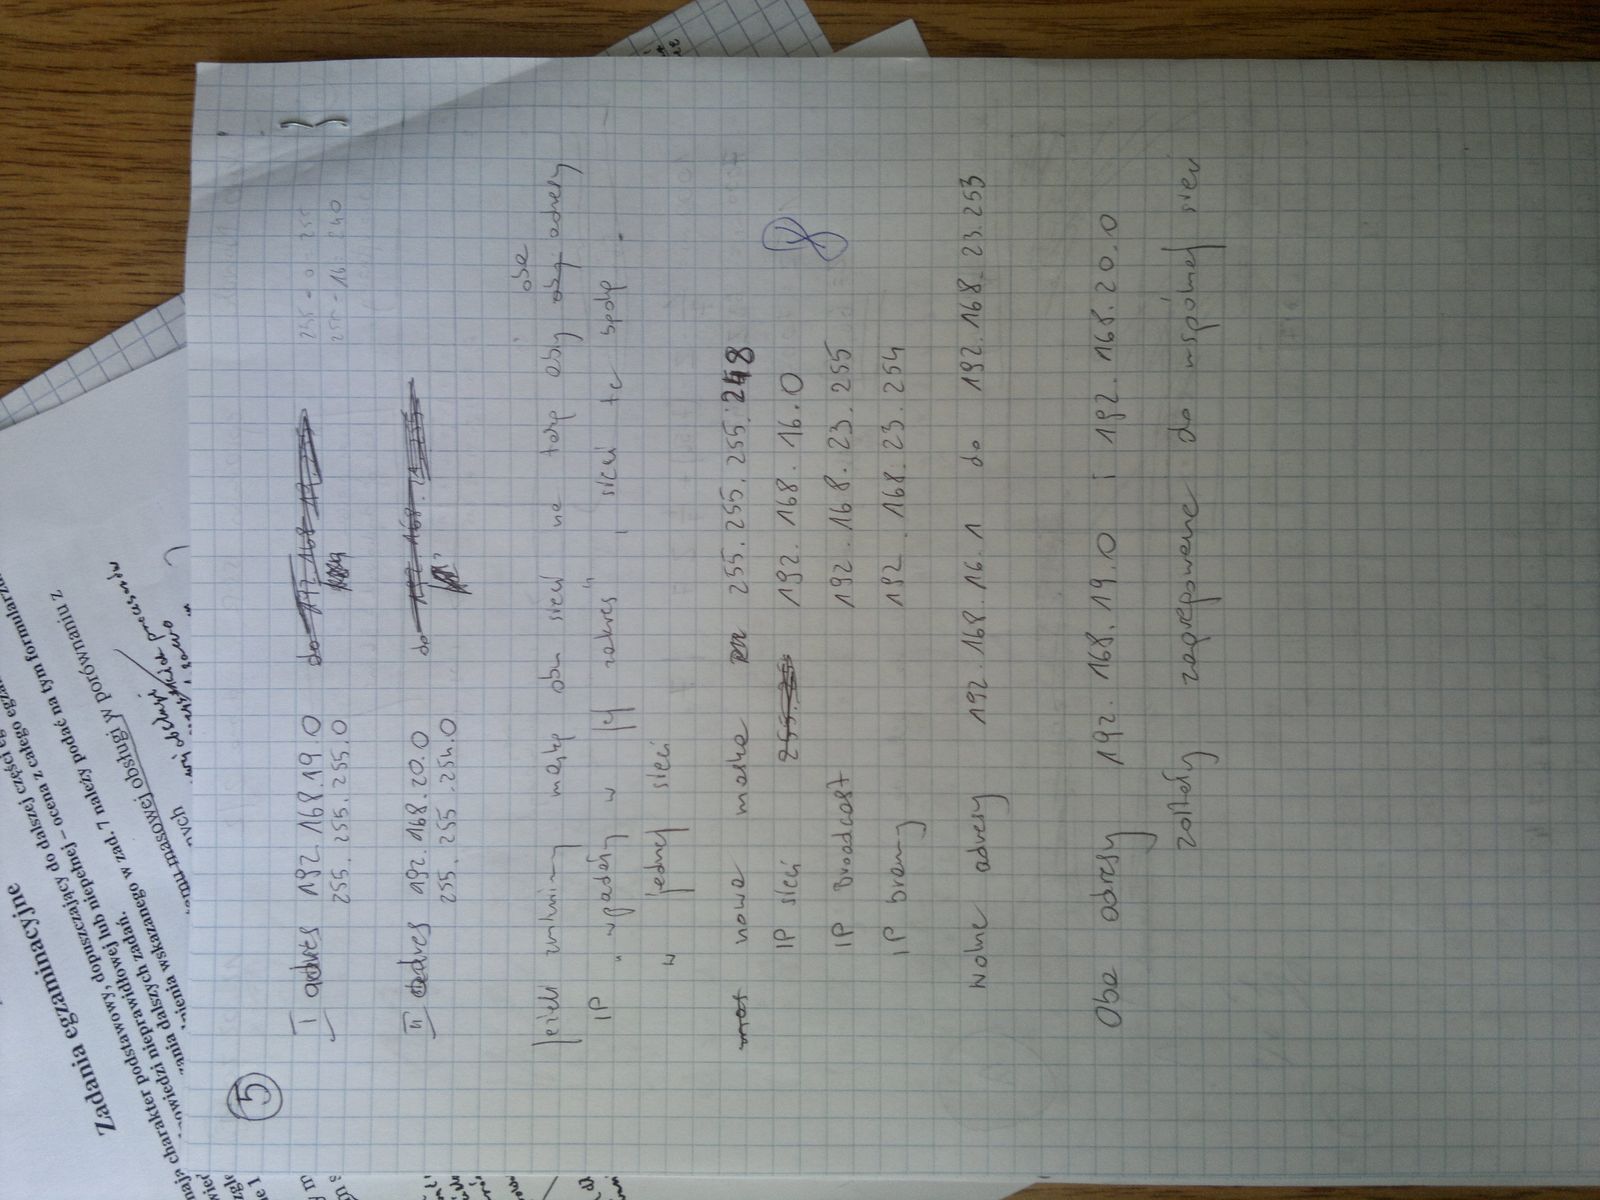 Zadania egzaminacyjne
mają charakter podstawowy, dopuszczający do dalszej części
odpowiedzi nieprawidłowej lub niepełnej – ocena z całego
zania dalszych zadań.
nienia wskazanego w zad. 7 należy podać na tym formularzu
temu masowej obsługi w porównaniu z
nych
obsługi
procesorów
5
I adres 192.168.19.0 do 192.168.19.255
255.255.255.0
II adres 192.168.20.0 do 192.168.21.255
255.255.254.0
Jeżeli zmienimy maskę obu sieci na taką aby oba adresy
IP „wpadały w jej zakres", sieci te będą
w jednej sieci
nowa maska 255.255.255.248
IP sieci 192.168.16.0
IP Broadcast 192.168.23.255
IP bramy 192.168.23.254
8
Wolne adresy 192.168.16.1 do 192.168.23.253
Oba adresy 192.168.19.0 i 192.168.20.0
zostały zagregowane do wspólnej sieci